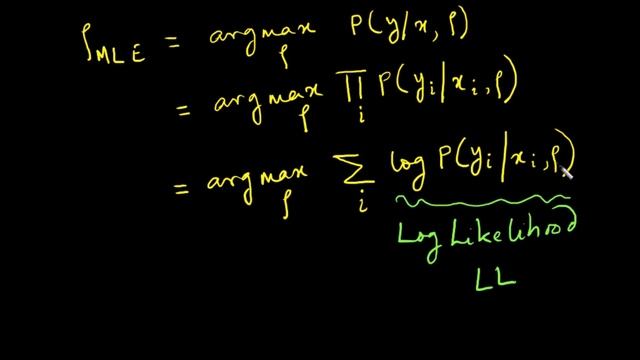 ρ_MLE = argmax_ρ P(y/x, ρ)
= argmax_ρ ∏_i P(y_i/x_i, ρ)
= argmax_ρ ∑_i log P(y_i/x_i, ρ)
Log Likelihood
LL